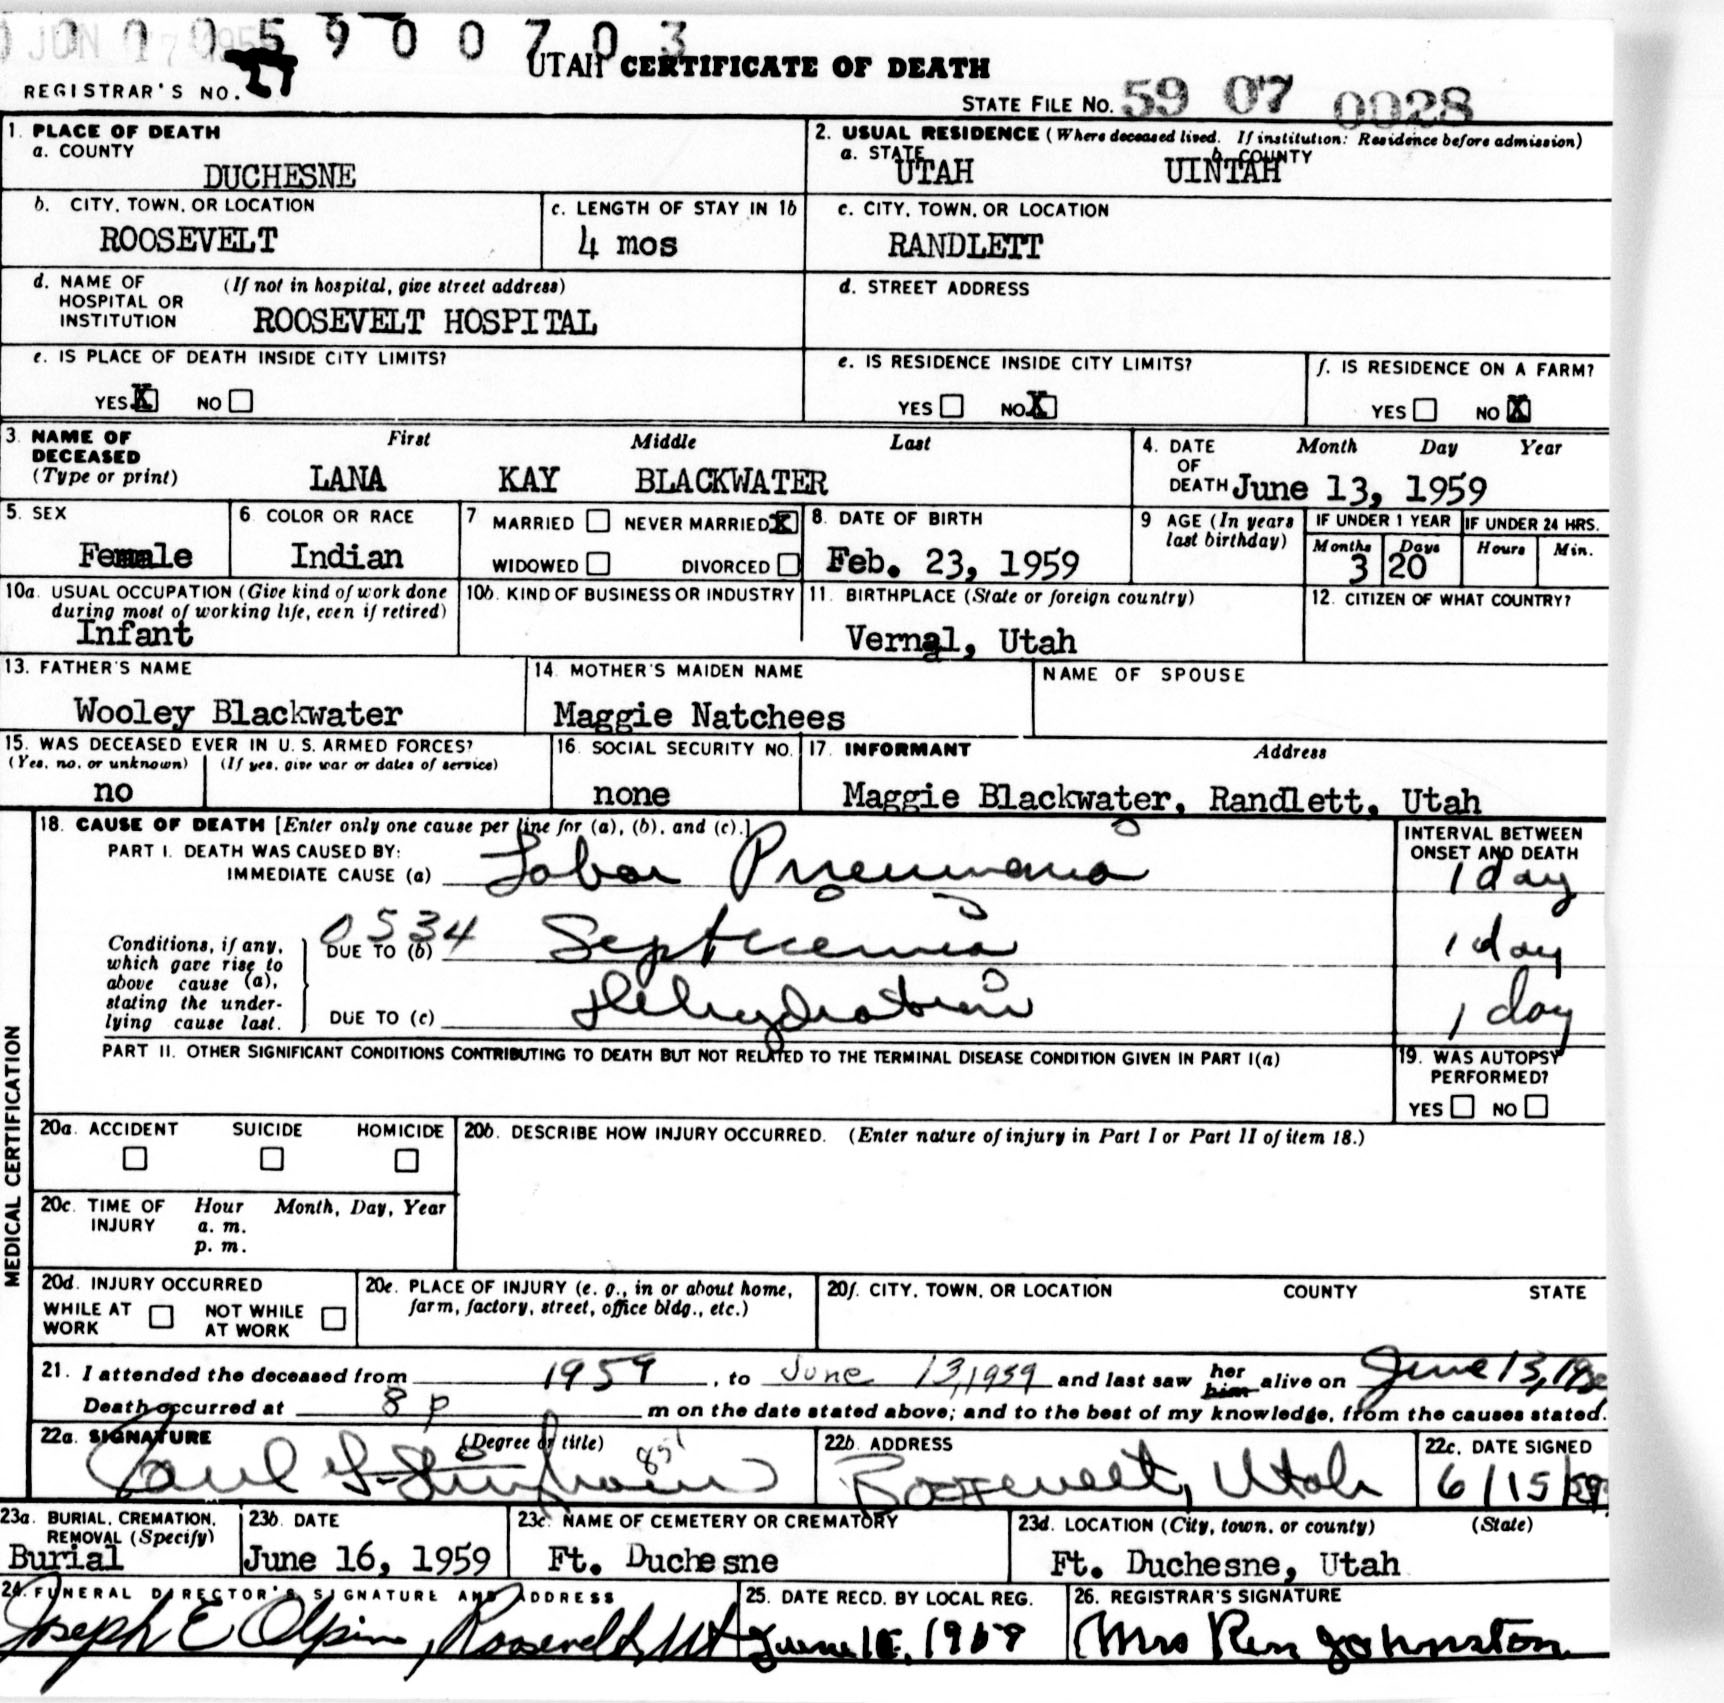 0 0 0 0 5 9 0 0 7 0 3
JUN 17 1959
UTAH CERTIFICATE OF DEATH
REGISTRAR'S NO. 27
STATE FILE No. 59 07 0028
1. PLACE OF DEATH
a. COUNTY
DUCHESNE
2. USUAL RESIDENCE (Where deceased lived. If institution: Residence before admission)
a. STATE b. COUNTY
UTAH UINTAH
b. CITY, TOWN, OR LOCATION
ROOSEVELT
c. LENGTH OF STAY IN 1b
4 mos
c. CITY, TOWN, OR LOCATION
RANDLETT
d. NAME OF (If not in hospital, give street address)
HOSPITAL OR
INSTITUTION ROOSEVELT HOSPITAL
d. STREET ADDRESS
e. IS PLACE OF DEATH INSIDE CITY LIMITS?
YES X NO
e. IS RESIDENCE INSIDE CITY LIMITS?
YES NO X
f. IS RESIDENCE ON A FARM?
YES NO X
3. NAME OF DECEASED (Type or print)
First Middle Last
LANA KAY BLACKWATER
4. DATE OF DEATH Month Day Year
June 13, 1959
5. SEX
Female
6. COLOR OR RACE
Indian
7 MARRIED NEVER MARRIED X
WIDOWED DIVORCED
8. DATE OF BIRTH
Feb. 23, 1959
9 AGE (In years last birthday)
IF UNDER 1 YEAR IF UNDER 24 HRS.
Months Days Hours Min.
3 20
10a. USUAL OCCUPATION (Give kind of work done
during most of working life, even if retired)
Infant
10b. KIND OF BUSINESS OR INDUSTRY
11. BIRTHPLACE (State or foreign country)
Vernal, Utah
12. CITIZEN OF WHAT COUNTRY?
13. FATHER'S NAME
Wooley Blackwater
14. MOTHER'S MAIDEN NAME
Maggie Natchees
NAME OF SPOUSE
15. WAS DECEASED EVER IN U.S. ARMED FORCES?
(Yes, no, or unknown) (If yes, give war or dates of service)
no
16. SOCIAL SECURITY NO.
none
17. INFORMANT Address
Maggie Blackwater, Randlett, Utah
MEDICAL CERTIFICATION
18. CAUSE OF DEATH [Enter only one cause per line for (a), (b), and (c).]
PART I. DEATH WAS CAUSED BY:
IMMEDIATE CAUSE (a) Lobar Pneumonia
INTERVAL BETWEEN
ONSET AND DEATH
1 day
0534
Conditions, if any,
which gave rise to
above cause (a),
stating the under-
lying cause last.
DUE TO (b) Septicemia 1 day
DUE TO (c) Dehydration 1 day
PART II. OTHER SIGNIFICANT CONDITIONS CONTRIBUTING TO DEATH BUT NOT RELATED TO THE TERMINAL DISEASE CONDITION GIVEN IN PART I(a)
19. WAS AUTOPSY
PERFORMED?
YES NO
20a. ACCIDENT SUICIDE HOMICIDE
20b. DESCRIBE HOW INJURY OCCURRED. (Enter nature of injury in Part I or Part II of item 18.)
20c. TIME OF INJURY Hour Month, Day, Year
a. m.
p. m.
20d. INJURY OCCURRED
WHILE AT WORK NOT WHILE AT WORK
20e. PLACE OF INJURY (e. g., in or about home,
farm, factory, street, office bldg., etc.)
20f. CITY, TOWN, OR LOCATION COUNTY STATE
21. I attended the deceased from 1959, to June 13, 1959 and last saw her him alive on June 13, 195
Death occurred at 8 p m on the date stated above; and to the best of my knowledge, from the causes stated.
22a. SIGNATURE (Degree or title)
Paul G. 85
22b. ADDRESS
Roosevelt, Utah
22c. DATE SIGNED
6/15/59
23a. BURIAL, CREMATION,
REMOVAL (Specify)
Burial
23b. DATE
June 16, 1959
23c. NAME OF CEMETERY OR CREMATORY
Ft. Duchesne
23d. LOCATION (City, town, or county) (State)
Ft. Duchesne, Utah
24. FUNERAL DIRECTOR'S SIGNATURE AND ADDRESS
Joseph E Olpin, Roosevelt, Ut
25. DATE RECD. BY LOCAL REG.
June 15, 1959
26. REGISTRAR'S SIGNATURE
Mrs Ren Johnston